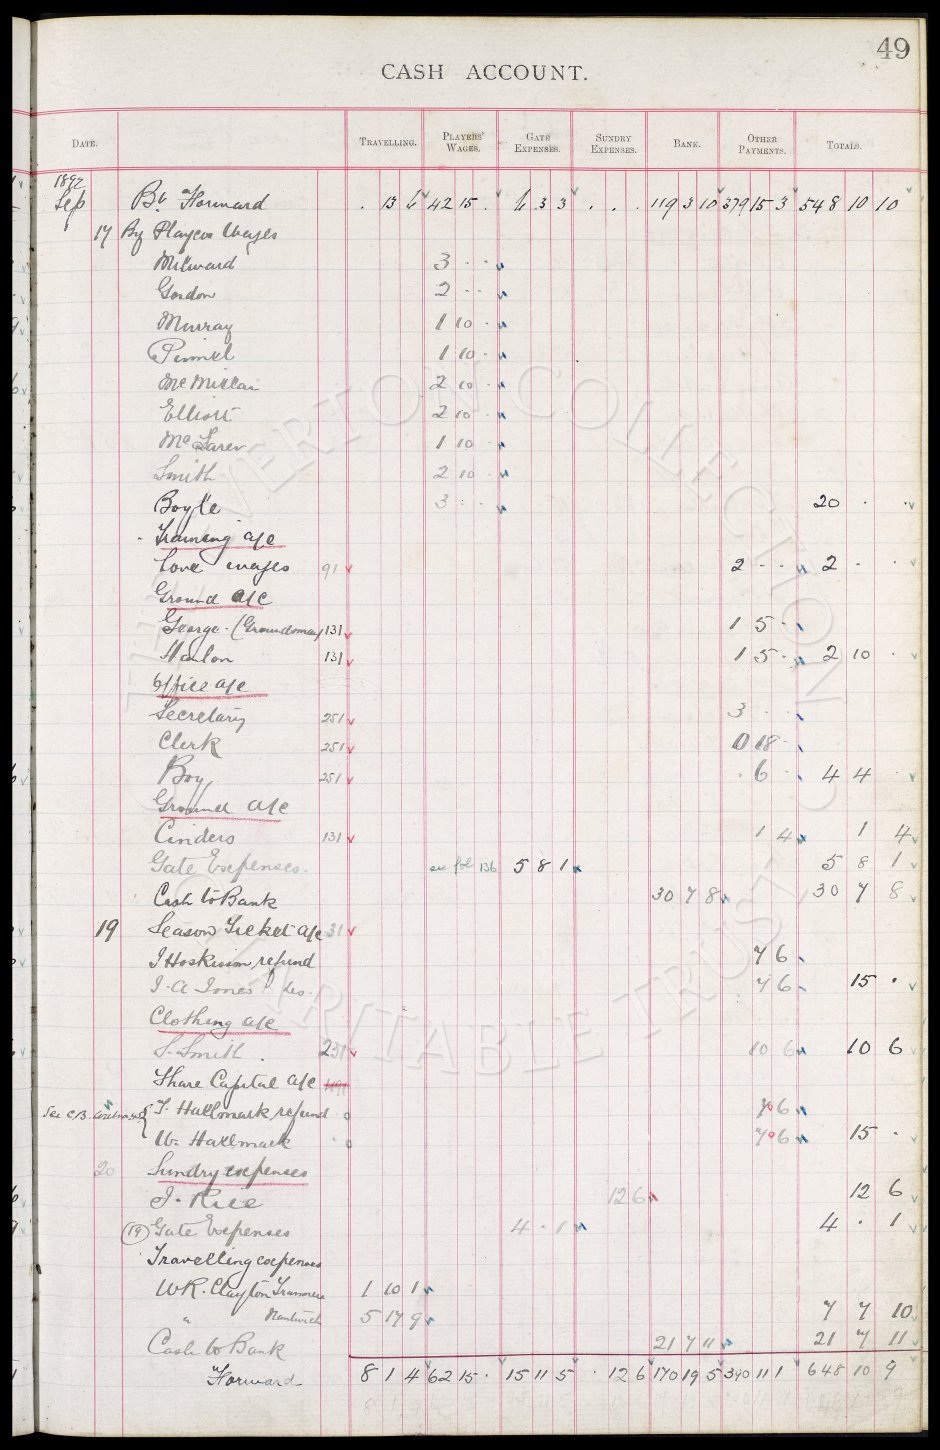 49
CASH ACCOUNT.
DATE. TRAVELLING. PLAYERS' WAGES. GATE EXPENSES. SUNDRY EXPENSES. BANK. OTHER PAYMENTS. TOTALS.
1892
Sep Bt. Forward . 13 6 42 15 . 6 3 3 . . . 119 3 10 379 15 3 548 10 10
17 By Players Wages
Milward 3 . .
Gordon 2 . .
Murray 1 10 .
Pinnel 1 10 .
McMillan 2 10 .
Elliott 2 10 .
McLaren 1 10 .
Smith 2 10 .
Boyle 3 . . 20 . .
Training a/c
Love wages 91 2 . . 2 . .
Ground a/c
George (Groundsman) 131 1 5 .
Hanlon 131 1 5 . 2 10 .
Office a/c
Secretary 251 3 . .
Clerk 251 0 18 .
Boy 251 . 6 . 4 4 .
Ground a/c
Cinders 131 1 4 1 4
Gate Expenses. see fol 136 5 8 1 5 8 1
Cash to Bank 30 7 8 30 7 8
19 Season Ticket a/c 31
J Hoskison refund 7 6
J. A Jones do. 7 6 15 .
Clothing a/c
S. Smith. 231 10 6 10 6
Share Capital a/c
See C.B. T. Hallmark refund 7 6
W. Hallmark 7 6 15 .
20 Sundry expenses
J. Rice 12 6 12 6
(19) Gate Expenses 4 . 1 4 . 1
Travelling expenses
W R. Clayton Tranmere 1 10 1
" Nantwich 5 17 9 7 7 10
Cash to Bank 21 7 11 21 7 11
Forward 8 1 4 62 15 . 15 11 5 . 12 6 170 19 5 390 11 1 648 10 9
THE EVERTON COLLECTION CHARITABLE TRUST